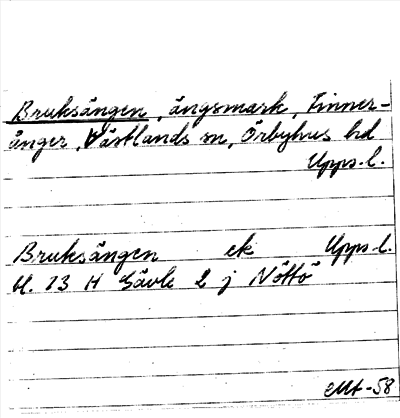 Bruksängen, ängsmark, Finner-
ånger, Västlands sn, Örbyhus hd
Upps. l.
Bruksängen ek Upps. l.
bl. 13 H Gävle 2 j Nöttö
EMt -58